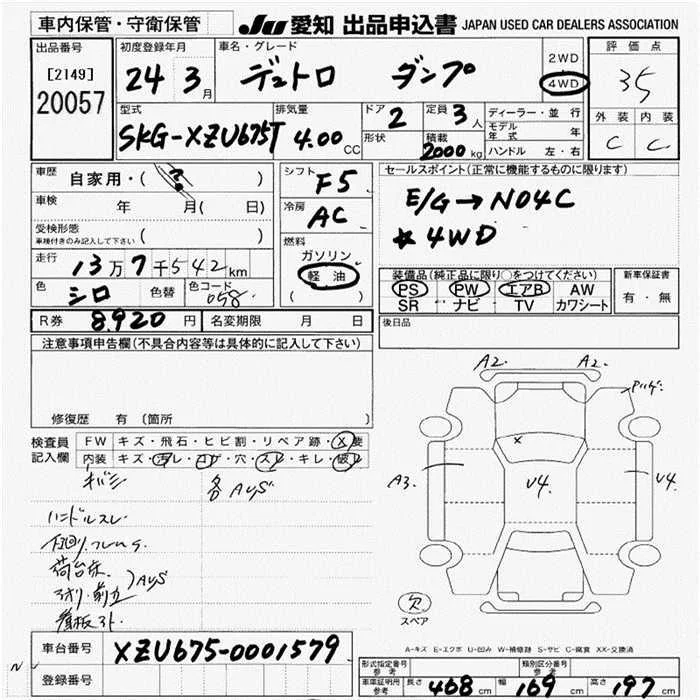 車内保管・守衛保管 JU 愛知 出品申込書 JAPAN USED CAR DEALERS ASSOCIATION
出品番号
[2149]
20057
初度登録年月
24 3月
車名・グレード
デュトロ ダンプ
2WD
4WD
評価点
35
外装 内装
C C
型式
SKG-XZU675T
排気量
4.00 CC
ドア
2
形状
定員
3人
積載
2000 kg
ディーラー・並行
モデル年式 年
ハンドル 左・右
車歴 自家用・( ? )
車検 年 月( 日)
受検形態
車検付きのみ記入して下さい ( )
走行 13万7千542km
色 シロ 色替 色コード 058
シフト F5
冷房 AC
燃料
ガソリン
軽油
( )
セールスポイント(正常に機能するものに限ります)
E/G→N04C
* 4WD
装備品(純正品に限り○をつけてください)
PS PW エアB AW
SR ナビ TV カワシート
新車保証書
有・無
R券 8,920円 名変期限 月 日
後日品
注意事項申告欄(不具合内容等は具体的に記入して下さい)
修復歴 有 〔箇所 〕
検査員記入欄
FW キズ・飛石・ヒビ割・リペア跡・X要
内装 キズ・汚レ・コゲ・穴・スレ・キレ・破レ
キバミ 各AUS
ハンドルスレ
下回リ
荷台床
アオリ・前立 )AUS
看板
A2. A2.
A3. V4. V4.
欠
スペア
A-キズ E-エクボ U-凹み W-補修跡 S-サビ C-腐食 XX-交換済
車台番号 XZU675-0001579
登録番号
N
形式指定番号 参考
類別区分番号 参考
車庫証明用 参考 長さ 468 cm 幅 169 cm 高さ 197 cm